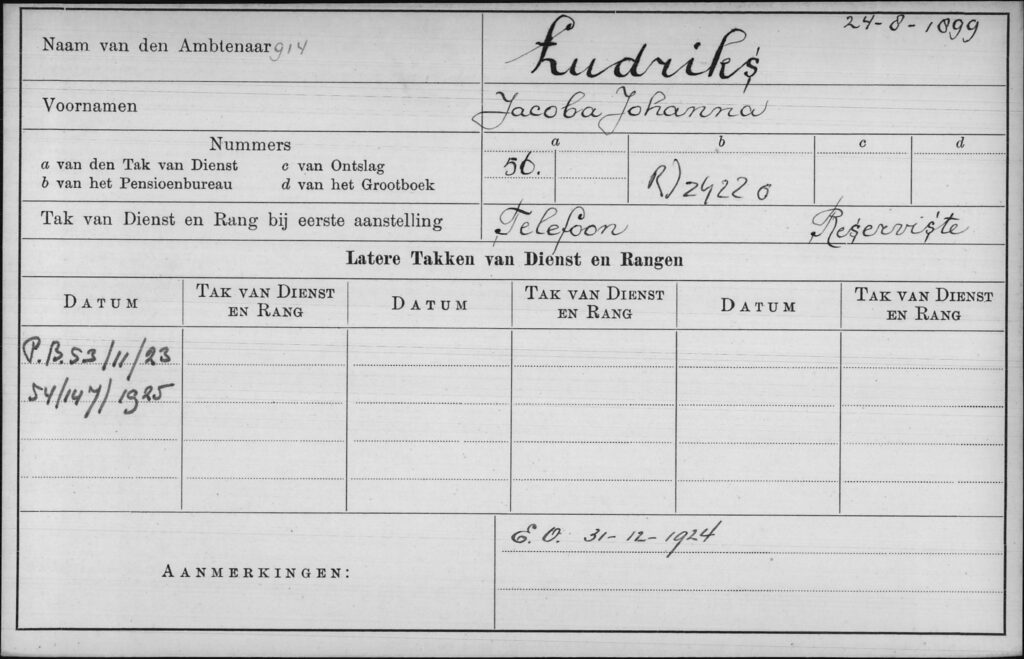 24-8-1899
Naam van den Ambtenaar 914 Ludriks
Voornamen Jacoba Johanna
Nummers
a van den Tak van Dienst c van Ontslag
b van het Pensioenbureau d van het Grootboek
a b c d
56. R) 24220
Tak van Dienst en Rang bij eerste aanstelling Telefoon Reserviste
Latere Takken van Dienst en Rangen
DATUM TAK VAN DIENST EN RANG DATUM TAK VAN DIENST EN RANG DATUM TAK VAN DIENST EN RANG
P.B. 53/11/23
54/147/1925
AANMERKINGEN: E.O. 31-12-1924